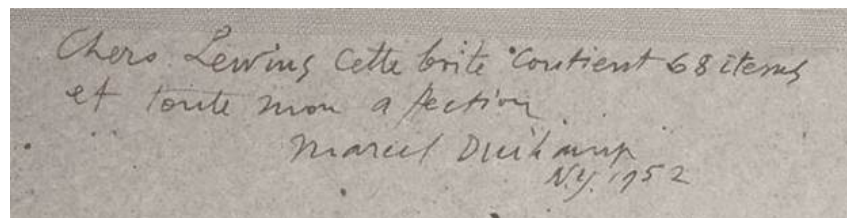 Chers Lewins Cette boite contient 68 items
et toute mon affection
Marcel Duchamp
N.Y. 1952